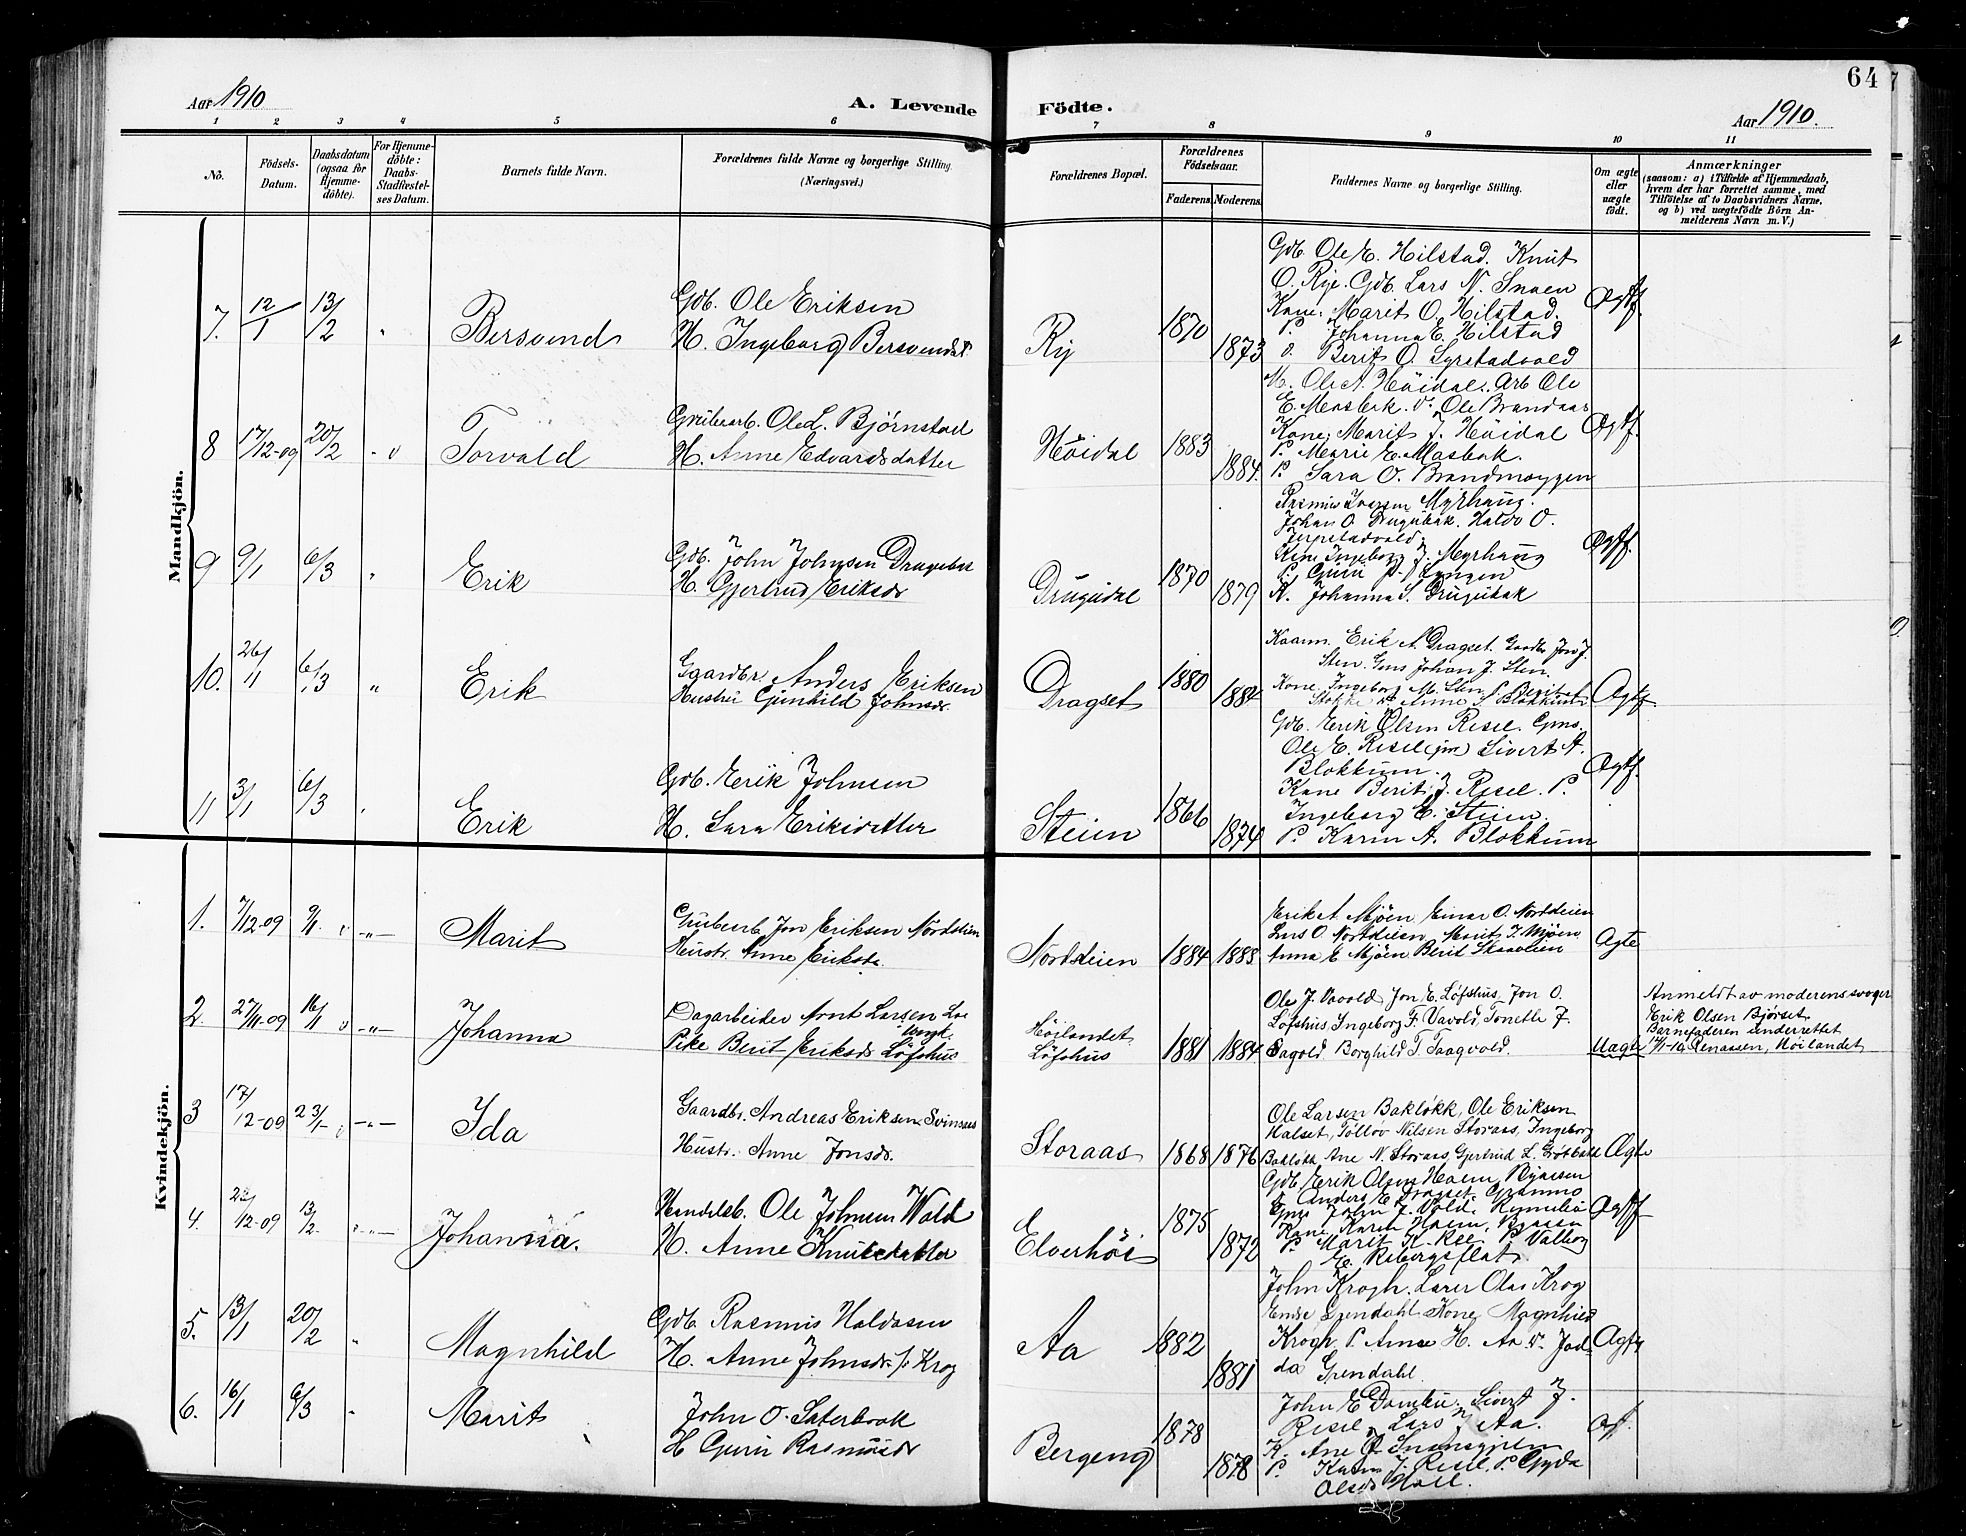 64
Aar 1910
A. Levende Födte.
Aar 1910.
1 2 3 4 5 6 7 8 9 10 11
No.
Födsels-
Datum.
Daabsdatum
(ogsaa for
Hjemme-
döbte).
For Hjemme-
döbte:
Daabs-
Stadfæstel-
ses Datum.
Barnets fulde Navn.
Forældrenes fulde Navne og borgerlige Stilling.
(Næringsvei.)
Forældrenes Bopæl.
Forældrenes
Födselsaar.
Faderens. Moderens.
Faddernes Navne og borgerlige Stilling.
Om ægte
eller
uægte
födt.
Anmærkninger
(saasom: a) i Tilfælde af Hjemmedaab,
hvem der har forrettet samme, med
Tilföielse af to Daabsvidners Navne,
og b) ved uægtefödte Börn An-
melderens Navn m. V.)
Mandkjön.
7. 12/1 13/2 "
Bersvend
Gdb. Ole Eriksen
H. Ingeborg Bersvendsd.
Ry
1870
1873
Gdb. Ole E. Hilstad. Knut
O. Rye. Gdb. Lars N. Snoen
Kone: Marit O. Hilstad.
P. Johanna E. Hilstad
v. Berit O. Syrstadvold
Ægtf.
8 17/12-09 20/2 - v
Torvald
Grubearb. Ole L. Bjørnstad
H. Anne Edvardsdatter
Höidal
1883
1884.
M. Ole A. Höidal. Arb Ole
E. Mosbek. v. Ole Brandaas
Kone: Marit J. Höidal
P. Marie E. Masbak.
P. Sara O. Brandmoeggen
Ægtf.
9 9/1 6/3 "
Erik
Gdb. John Johnsen Drugubak
H. Gjertrud Eriksdr
Drugudal
1870
1879
Rasmus Ivarsen Myrhaug.
Johan O. Drugubak. Haldo O.
Jerpstadvold.
Kone Ingeborg J. Myrhaug
P. Guru Lyngen
K. Johanna S. Drugubak
Ægtf.
10. 26/11 6/3 "
Erik
Gaardbr. Anders Eriksen
Hustru Gunhild Johnsdr.
Dragset
1880
1884
Kaarm. Erik A. Dragset. Gaardbr Jon J.
Sten. Gms Johan J. Sten.
Kone Ingeborg M. Sten P. Berit
Stokke Anne S. Blokkum
Ægtf
11 3/1 6/3 "
Erik
Gdb. Erik Johnsen
H. Sara Eriksdatter
Steien
1866
1874
Gdb. Erik Olsen Resel. Gms.
Ole E. Resel (jm) Sivert A.
Blokkum.
Kone Berit J. Resel. P.
Ingeborg E. Steien.
P. Karen A. Blokkum
Ægtf.
Kvindekjön.
1. 7/12-09 9/1. v -"-
Marit
Grubearb Jon Eriksen Nordsteien
Hustr. Anne Eriksdr.
Nordsteien
1884 1885
Erik A. Mjöen Einar O. Nordsteien
Lars O. Nordsteien, Marit J. Mjöen.
Anna E Mjöen Berit Skaaveien
Ægte
2. 27/11-09 16/1 v -"-
Johanna
Dagarbeider Arnt Larsen
Pike Berit Eriksdr Löfshus
Höilandet
Löfshus
1881 1884
Ole J. Vavold Jon E. Løfshus, Jon O.
Løfshus, Ingeborg F. Vavold, Tonette J.
Sagvold Borghild T. Taagvold.
Uægte
Anmeldt av moderens svoger
Erik Olsen Bjørset
Barnefaderen underrettet
Höilandet
3 17/12-09 23/1- v -"-
Ida
Gaardbr. Andreas Eriksen Svinsaas
Hustr. Anne Jonsdr.
Storaas
1868 1876
Ole Larsen Bakløkk, Ole Eriksen
Halset, Tølløv Nilsen Storaas, Ingeborg
Bakløkk Ane N. Storaas, Gjertrud L.
Ægte
4. 23/12-09 13/2. " -"-
Johanna.
Handelsb. Ole Johnsen Wold
H. Anne Knutsdatter
Elverhöi
1875
1872
Gdb. Erik Olsen Hoem, Byaasen
Anders E. Dragset. Grammo
Gms John J. Vold. Rennebu
Kone Karen Hoem, Byaasen
P. Marit K. Ree P. Valborg
E. Risbergsflat.
Ægtf
5. 13/1 20/2 "
Magnhild
Gdb Rasmus Haldosen
H. Anne Johnsdr. f. Krog
Aa
1882
1881
John Krogh. Lærer Olav Krog
Grendahl Kone Magnhild
Krogh P. Anne H. Aa v. Jod-
da Grendahl.
Ægtf
6. 16/1 6/3 "
Marit
John O. Sæterbrak
H Guru Rasmusdr
Bergeng
1878
1878
John E. Sivert J.
Resel Lars Aa.
K. Ane
P. Karen J. Resel, P. Gyda
Olsdr Holl.
Ægt.